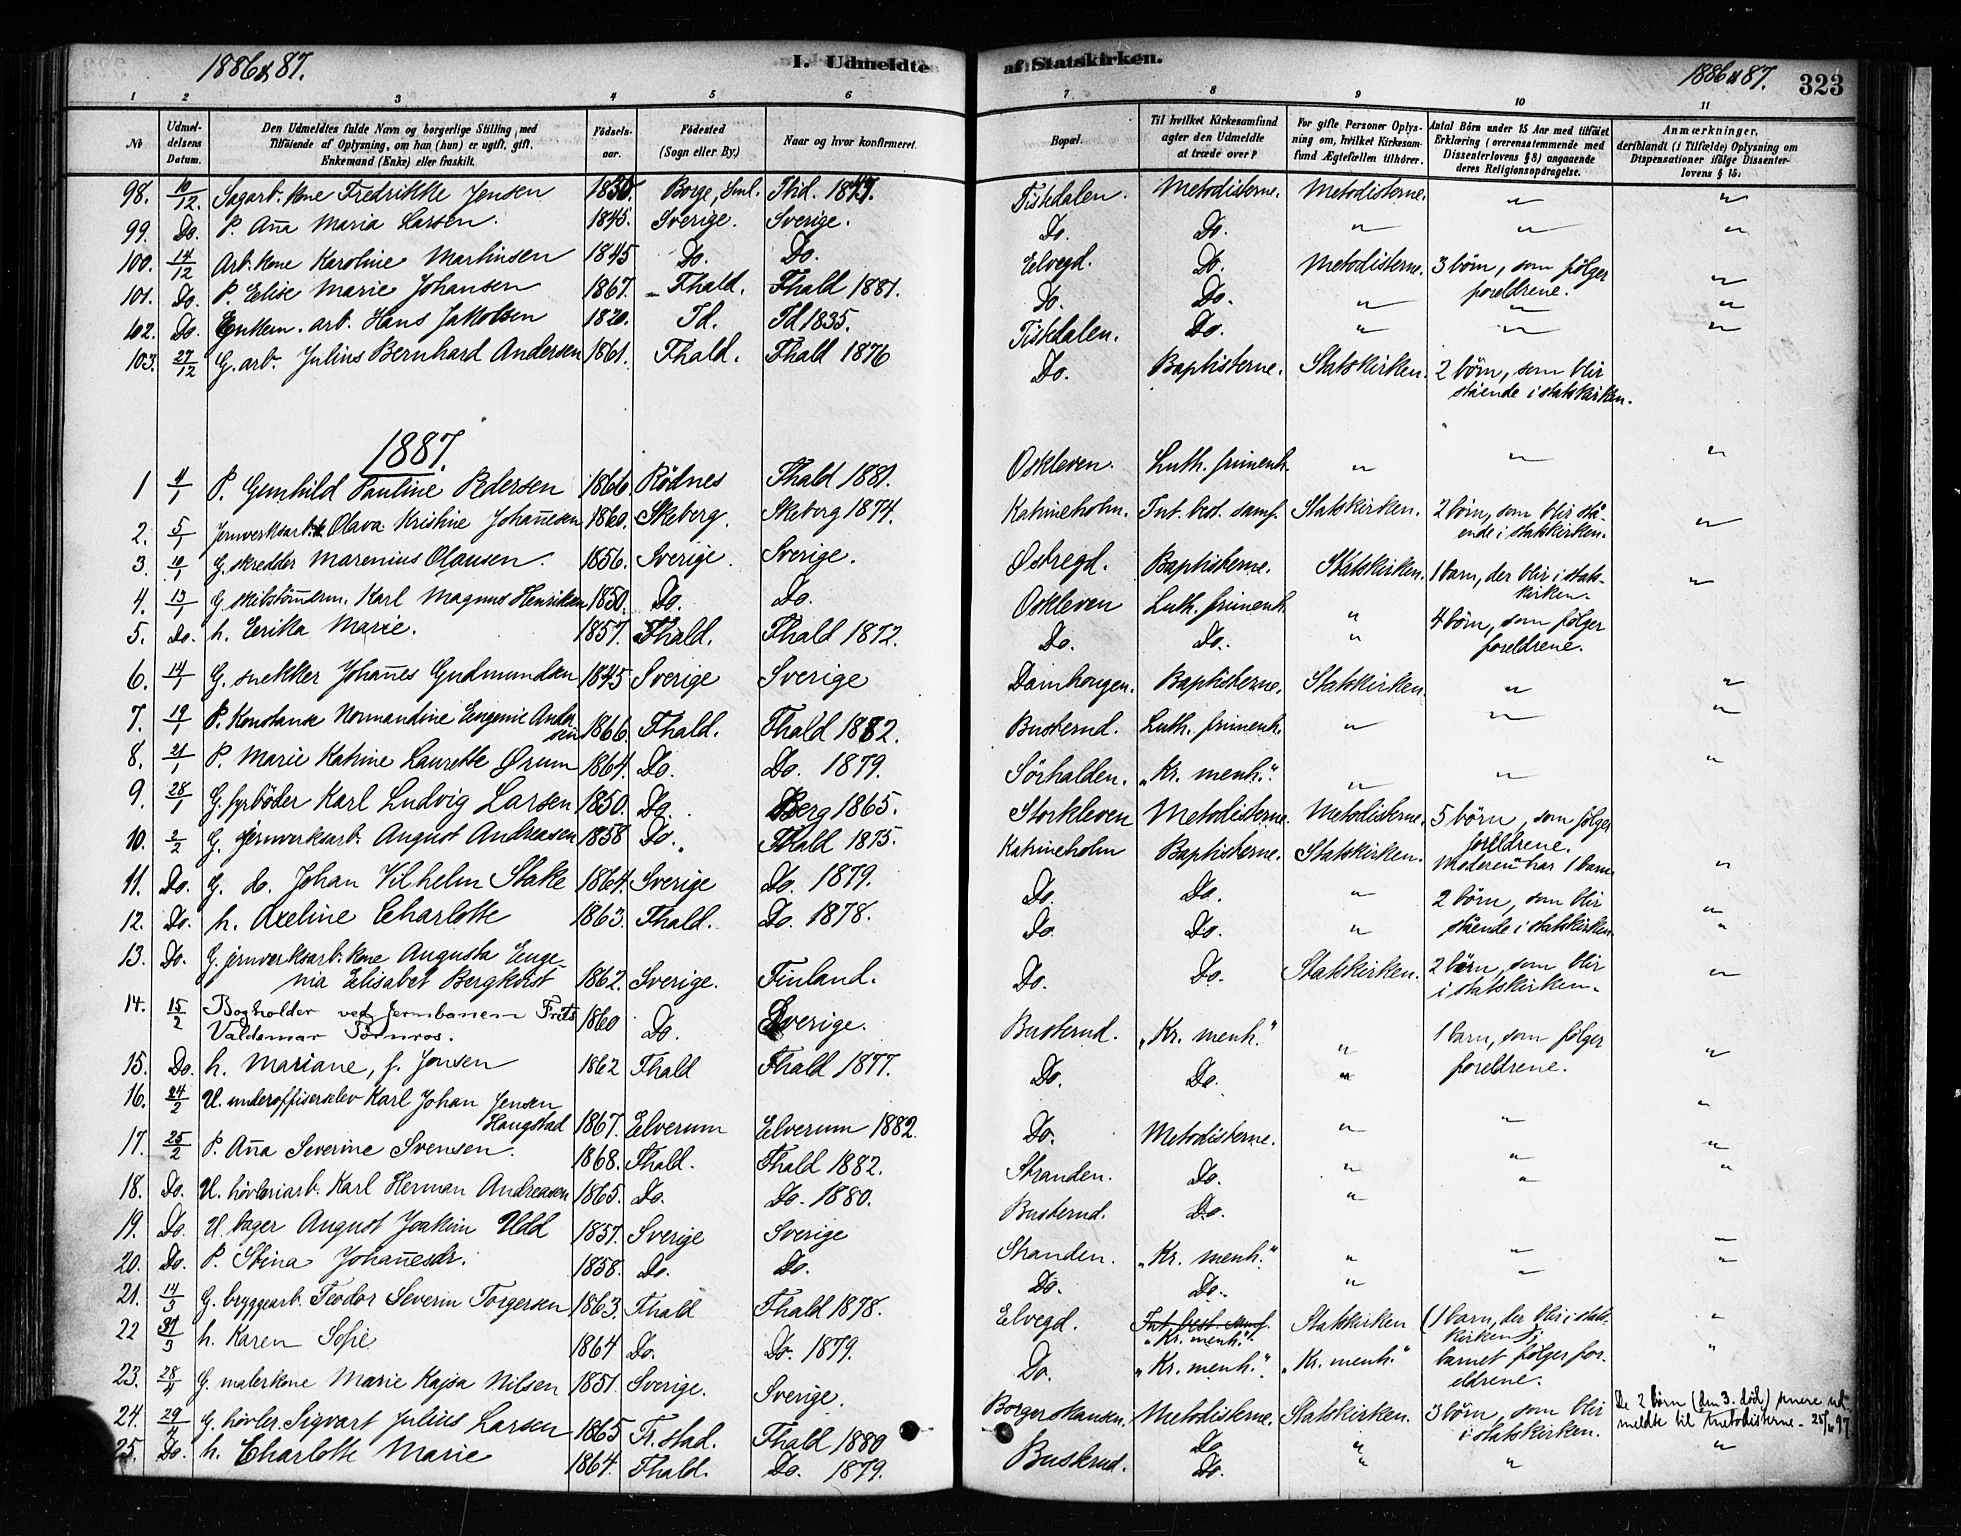 1886 & 87.
I. Udmeldte
af Statskirken.
1886 & 87.
323
1 2 3 4 5 6 7 8 9 10 11
№ | Udmeldelsens Datum. | Den Udmeldtes fulde Navn og borgerlige Stilling, med Tilføiende af Oplysning, om han (hun) er ugift, gift, Enkemand (Enke) eller fraskilt. | Fødselsaar. | Fødested (Sogn eller By.) | Naar og hvor konfirmeret. | Bopæl. | Til hvilket Kirkesamfund agter den Udmeldte at træde over? | For gifte Personer Oplysning om, hvilket Kirkesamfund Ægtefællen tilhører. | Antal Børn under 15 Aar med tilføiet Erklæring (overensstemmende med Dissenterlovens § 8) angaaende deres Religionsopdragelse. | Anmærkninger, deriblandt (i Tilfælde) Oplysning om Dispensationer ifølge Dissenterlovens § 15.
98. 10/12. Sagarb. kone Fredrikke Jensen 1830. Borge, Fhald. 1847. Tistedalen. Metodisterne. Metodisterne. " "
99. Do. P. Aña Maria Larsen. 1845. Sverige. Sverige. Do. Do. " " "
100. 14/12 Arb. kone Karoline Martinsen 1845 Do. Do. Elvegd. Do. Metodisterne. 3 börn, som fölger foreldrene. "
101. Do. P. Elise Marie Johansen 1867. Fhald. Fhald 1881. Do. Do. " " "
102. Do. Enkem. arb. Hans Jakobsen 1820. Id. Id 1835. Tistedalen. Do. " " "
103. 27/12 G. arb. Julius Bernhard Andersen 1861. Fhald. Fhald 1876 Do. Baptisterne. Statskirken. 2 börn, som blir stående i statskirken.
1887.
1 4/1 P. Gunhild Pauline Pedersen 1866 Rödnes Fhald 1881. Oskleven. Luth. frimenh. " " "
2. 5/1 Jernverksarb. k. Olava Kristine Johañesen 1860. Skeberg. Skeberg 1874. Katrineholm. Int. best. samf. Statskirken. 2 börn, som blir stående i statskirken. "
3. 10/1 G. skredder Marenius Olausen. 1856. Sverige. Sverige. Østregd. Baptisterne. Statskirken. 1 barn, der blir i statskirken. "
4. 13/1 G. skibstömerm. Karl Magnus Henriksen 1850. Do. Do. Oskleven Luth. frimenh. " 4 börn, som fölger
5. Do. h. Eerika Marie. 1857. Fhald. Fhald 1872. Do. Do. " foreldrene.
6. 14/1 G. snekker Johañes Gudmundsen 1845 Sverige Sverige Damhougen. Baptisterne. Statskirken. " "
7. 19/1 P. Konstanse Normandine Eugenie Andersen 1866. Fhald. Fhald 1882. Busterud. Luth. frimenh. " " "
8. 21/1 P. Marie Katrine Laurette Ørum 1864. Do. Do. 1879. Sörhalden. „Kr. menh." " " "
9. 28/1 G. fyrböder Karl Ludvig Larsen 1850. Do. Berg 1865. Storkleven Metodisterne. Metodisterne. 5 börn, som fölger foreldrene.
10. 2/2 G. jernverksarb. August Andreasen 1858 Do. Fhald 1875. Katrineholm Baptisterne. Statskirken. Moderen har 1 barn "
11. Do. G. do. Johan Vilhelm Stake 1864. Sverige Do. 1879. Do. Do. " 2 börn, som blir "
12. Do. h. Axeline Charlotte 1863. Fhald. Do. 1878. Do. Do. " stående i statskirken "
13. Do. G. jernverksarb. kone Augusta Eugenia Elisabet Bergkvist 1862. Sverige. Finland. Do. Do. Statskirken. 2 börn, som blir i statskirken. "
14. 15/2 Bogholder ved jernbanen Frits Valdemar Törnros. 1860 Do. Sverige. Busterud. „Kr. menh." " 1 barn, som fölger
15. Do. h. Mariane, f. Jensen 1862 Fhald Fhald 1877. Do. Do. " foreldrene. "
16. 24/2 U. underoffiserselev Karl Johan Jensen Haugstad 1867. Elverum Elverum 1882. Do. Metodisterne. " " "
17. 25/2 P. Aña Severine Svensen. 1868. Fhald. Fhald 1882. Stranden. Do. " " "
18. Do. U. hövleriarb. Karl Herman Andreasen 1865. Do. Do. 1880. Busterud. Do. " " "
19. Do. U. bager August Joakim Udd 1857. Sverige Sverige Stranden. „Kr. menh." " " "
20. Do. P. Stina Johañesdr. 1858. Do. Do. Do. Do. " " "
21. 14/3 G. bryggearb. Teodor Severin Torgersen 1863. Fhald Fhald 1878. Elvegd. Int. best. samf. „Kr. menh." Statskirken (1 barn, der blir i statskirken); "
22 31/3 h. Karen Sofie 1864 Do. Do. 1879. Do. „Kr. menh." „Kr. menh." barnet fölger foreldrene. "
23. 28/4 G. malerkone Marie Kajsa Nilsen 1851. Sverige. Sverige. Borgerskansen. Metodisterne. Statskirken. 3 börn, som blir i statskirken. De 2 börn (den 3. död) senere udmeldte til Metodisterne - 25/6 97
24. 29/4 G. hövler. Sigvart Julius Larsen 1865 Fr.stad. Fhald 1880 Buskrud. Do " " "
25. Do. h. Charlotte Marie 1864. Fhald. Do. 1879. Do. "